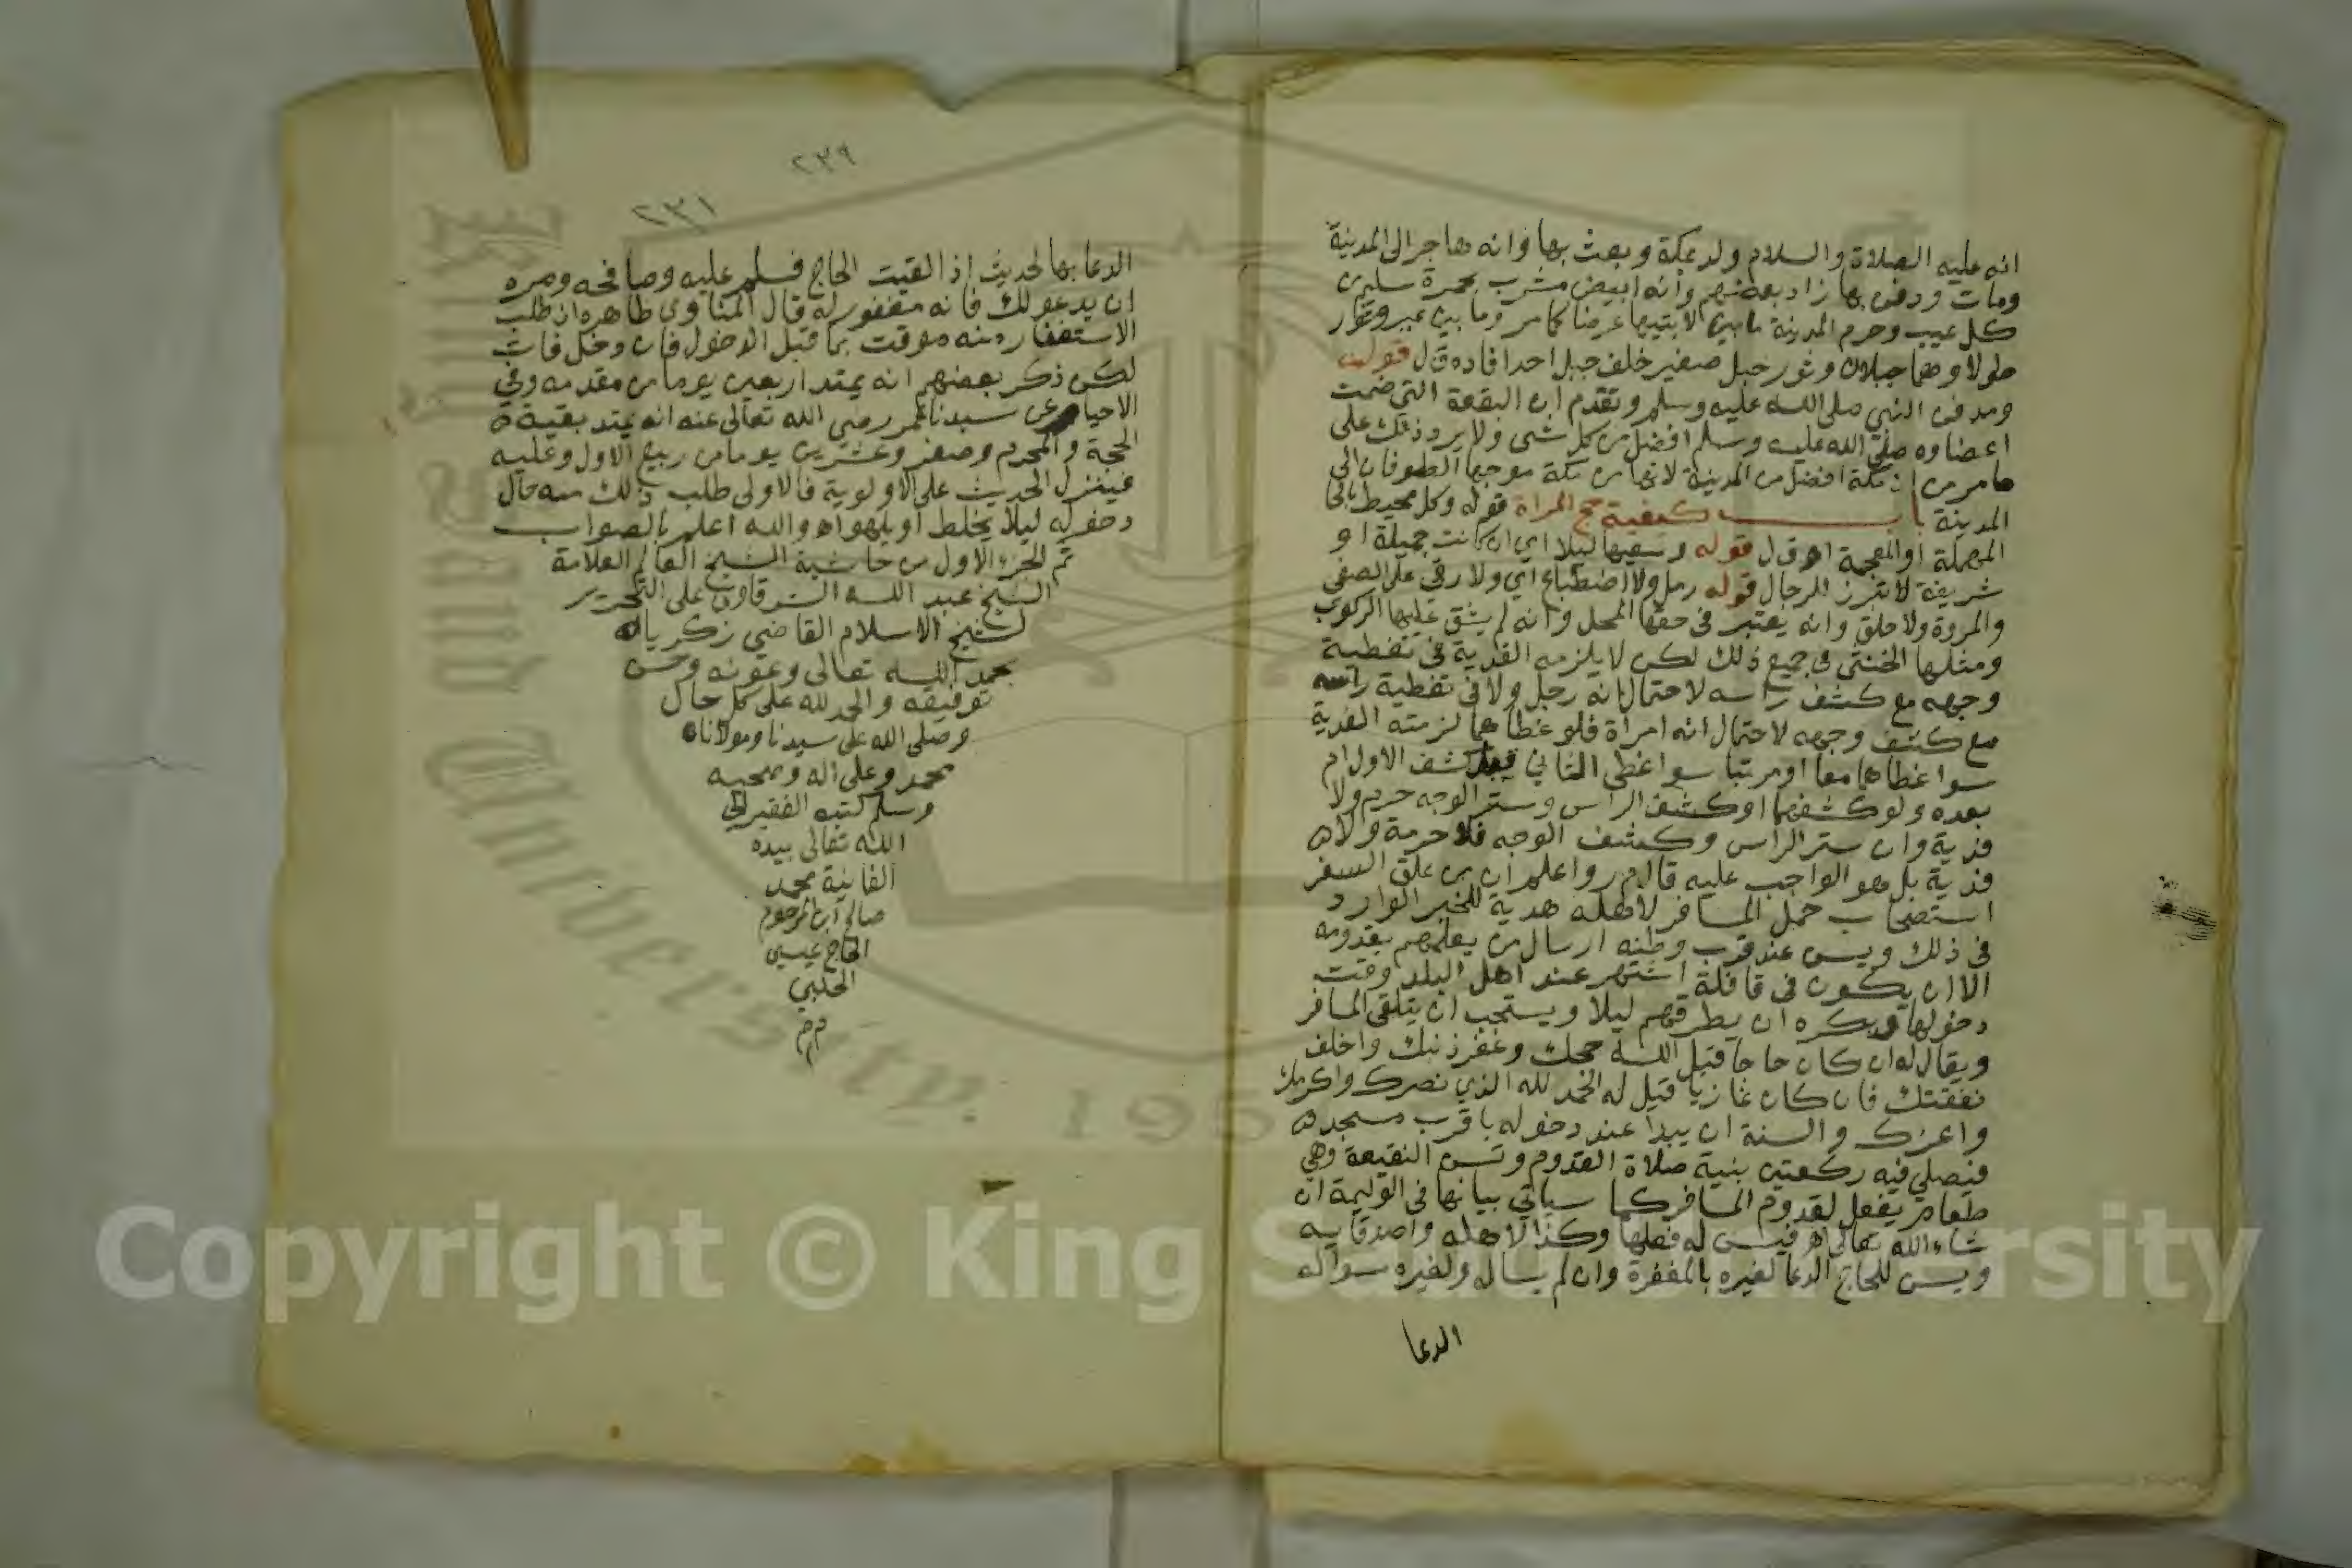 انه عليه الصلاة والسلام ولد بمكة وبعث بها وانه هاجر الى المدينة
ومات ودفن بها زاد بعضهم وانه ابيض مشرب بحمرة سليم من
كل عيب وحرم المدينة ما بين لابتيها عرضا كما مر وما بين عير وثور
طولا وهما جبلان وثور جبل صغير خلف جبل احد افاده ق ل قوله
ومدفن النبي صلى الله عليه وسلم وتقدم ان البقعة التي ضمت
اعضاوه صلى الله عليه وسلم افضل من كل شي ولا يرد ذلك على
ما مر من ان مكة افضل من المدينة لانها من مكة موجها الطوفان الى
المدينة باب كيفية حج المراة قوله وكل محيط بالحا
المهملة او المعجمة اه ق ل قوله وسعيها ليلا اي ان كانت جميلة او
شريفة لا تبرز للرجال قوله رمل ولا اضطباع اي ولا رقي على الصفى
والمروة ولا حلق وانه يعتبر في حقها المحل وانه لم يشق عليها الركوب
ومثلها الخنثى في جميع ذلك لكن لا يلزمه الفدية في تغطية
وجهه مع كشف راسه لاحتمال انه رجل ولا في تغطية راسه
مع كشف وجهه لاحتمال انه امراة فلو غطاهما لزمته الفدية
سوا غطاهما معا او مرتبا سوا غطى الثاني قبل كشف الاول ام
بعده ولو كشفهما او كشف الراس وستر الوجه حرم ولا
فدية وان ستر الراس وكشف الوجه فلا حرمة ولا
فدية بل هو الواجب عليه قال م ر واعلم ان من علق السفر
استصحاب حمل المسافر لاهله هدية للخبر الوارد
في ذلك ويسن عند قرب وطنه ارسال من يعلمهم بقدومه
الا ان يكون في قافلة اشتهر عند اهل البلد وقت
دخولها ويكره ان يطرقهم ليلا ويستحب ان يتلقى المسافر
ويقال له ان كان حاجا قبل الله حجك وغفر ذنبك واخلف
نفقتك فان كان غازيا قيل له الحمد لله الذي نصرك واكرمك
واعزك والسنة ان يبدا عند دخوله باقرب مسجد
فيصلي فيه ركعتين بنية صلاة القدوم وتسن النقيعة وهي
طعام يفعل لقدوم المسافر كما سياتي بيانها في الوليمة ان
شاء الله تعالى اه فيسن له فعلها وكذا لاهله واصدقايه
ويسن للحاج الدعا لغيره بالمغفرة وان لم يساله ولغيره سواله
الدعا
٢٣٩
٢٣١
الدعا بها لحديث اذا لقيت الحاج فسلم عليه وصافحه ومره
ان يدعو لك فانه مغفور له قال المناوي ظاهره ان طلب
الاستغفار منه موقت بما قبل الدخول فان دخل فات
لكن ذكر بعضهم انه يمتد اربعين يوما من مقدمه وفي
الاحيا عن سيدنا عمر رضي الله تعالى عنه انه يمتد بقية
الحجة والمحرم وصفر وعشرين يوما من ربيع الاول وعليه
فينزل الحديث على الاولوية فالاولى طلب ذلك منه حال
دخوله ليلا يخلط او يلهو اه والله اعلم بالصواب
تم الجزء الاول من حاشية الشيخ العالم العلامة
الشيخ عبد الله الشرقاوي على التحرير
لشيخ الاسلام القاضي زكريا
بحمد الله تعالى وعونه وحسن
توفيقه والحمد لله على كل حال
وصلى الله على سيدنا ومولانا
محمد وعلى اله وصحبه
وسلم كتبه الفقير الى
الله تعالى بيده
الفانية محمد
صالح ابن المرحوم
الحاج عيسى
الحلبي
م م م
King Saud University 195
Copyright © King Saud University